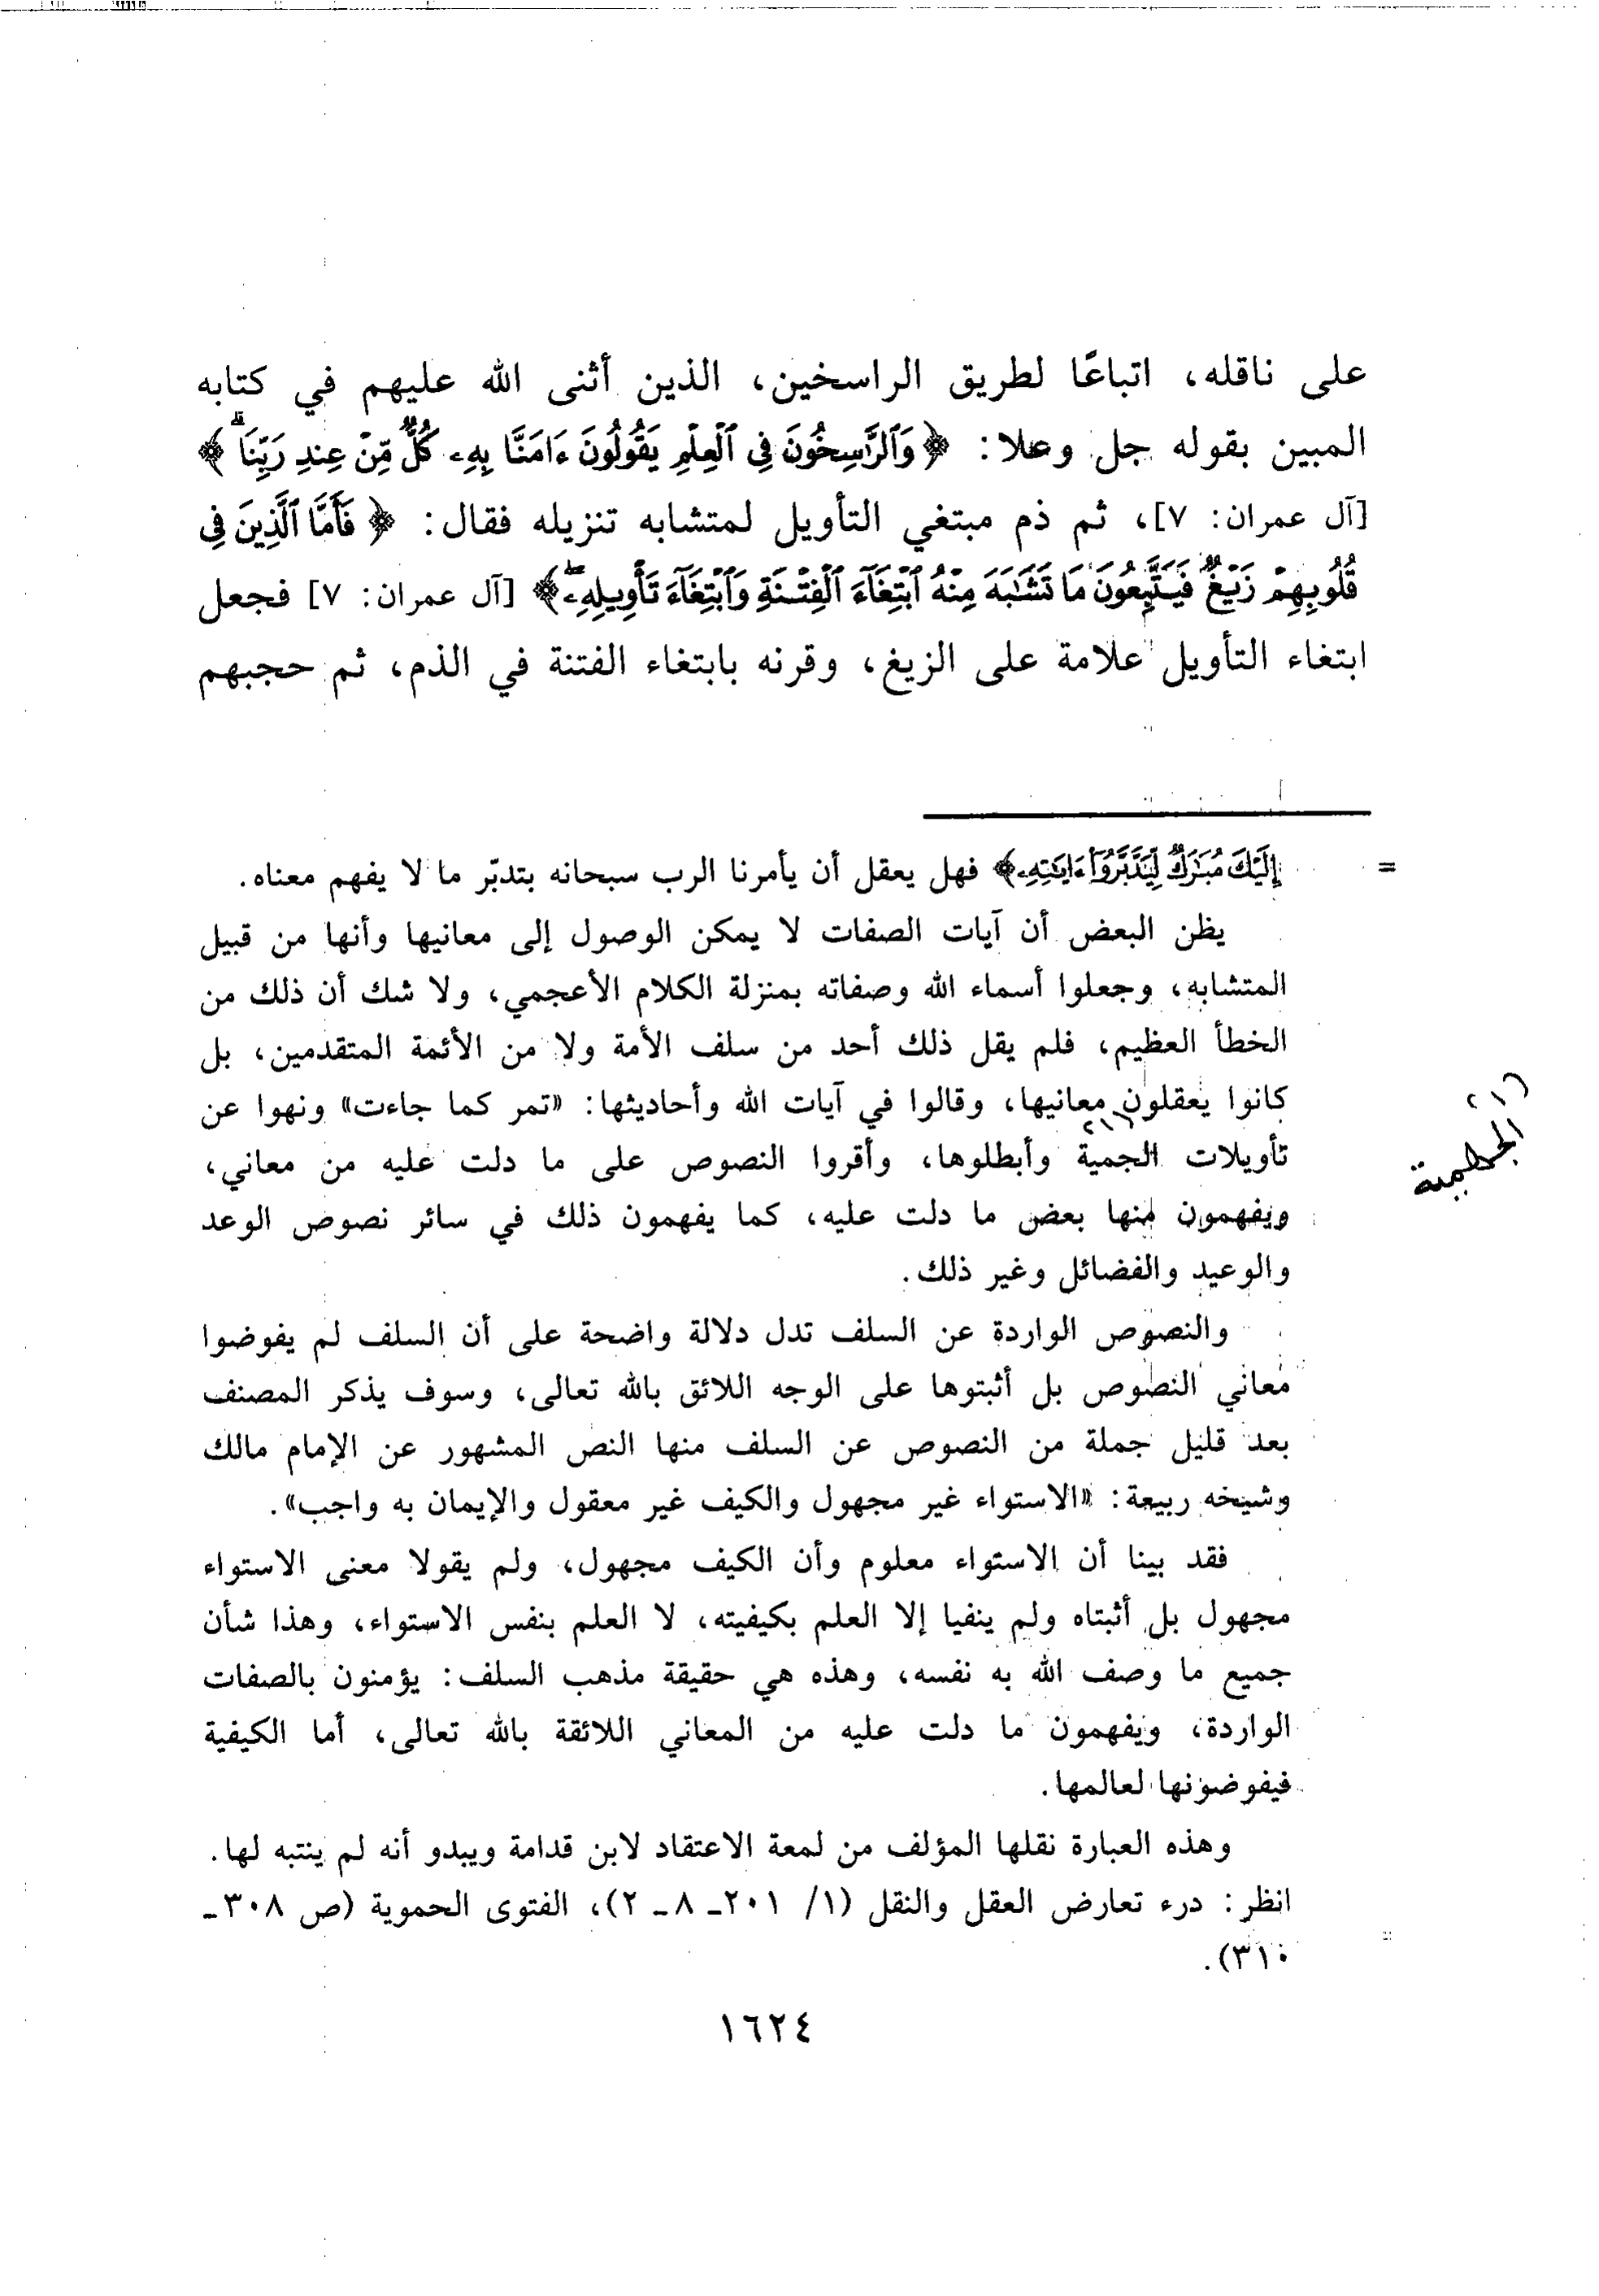 على ناقله، اتباعًا لطريق الراسخين، الذين أثنى الله عليهم في كتابه
المبين بقوله جل وعلا: ﴿وَٱلرَّٰسِخُونَ فِي ٱلْعِلْمِ يَقُولُونَ ءَامَنَّا بِهِۦ كُلٌّ مِّنْ عِندِ رَبِّنَا ۗ﴾
[آل عمران: ٧]، ثم ذم مبتغي التأويل لمتشابه تنزيله فقال: ﴿فَأَمَّا ٱلَّذِينَ فِي
قُلُوبِهِمْ زَيْغٌ فَيَتَّبِعُونَ مَا تَشَٰبَهَ مِنْهُ ٱبْتِغَآءَ ٱلْفِتْنَةِ وَٱبْتِغَآءَ تَأْوِيلِهِۦ ۖ﴾ [آل عمران: ٧] فجعل
ابتغاء التأويل علامة على الزيغ، وقرنه بابتغاء الفتنة في الذم، ثم حجبهم
= إِلَيْكَ مُبَٰرَكٌ لِّيَدَّبَّرُوٓا۟ ءَايَٰتِهِۦ﴾ فهل يعقل أن يأمرنا الرب سبحانه بتدبّر ما لا يفهم معناه.
يظن البعض أن آيات الصفات لا يمكن الوصول إلى معانيها وأنها من قبيل
المتشابه، وجعلوا أسماء الله وصفاته بمنزلة الكلام الأعجمي، ولا شك أن ذلك من
الخطأ العظيم، فلم يقل ذلك أحد من سلف الأمة ولا من الأئمة المتقدمين، بل
كانوا يعقلون معانيها، وقالوا في آيات الله وأحاديثها: «تمر كما جاءت» ونهوا عن
تأويلات الجمية وأبطلوها، وأقروا النصوص على ما دلت عليه من معاني،
ويفهمون منها بعض ما دلت عليه، كما يفهمون ذلك في سائر نصوص الوعد
والوعيد والفضائل وغير ذلك.
والنصوص الواردة عن السلف تدل دلالة واضحة على أن السلف لم يفوضوا
معاني النصوص بل أثبتوها على الوجه اللائق بالله تعالى، وسوف يذكر المصنف
بعد قليل جملة من النصوص عن السلف منها النص المشهور عن الإمام مالك
وشيخه ربيعة: «الاستواء غير مجهول والكيف غير معقول والإيمان به واجب».
فقد بينا أن الاستواء معلوم وأن الكيف مجهول، ولم يقولا معنى الاستواء
مجهول بل أثبتاه ولم ينفيا إلا العلم بكيفيته، لا العلم بنفس الاستواء، وهذا شأن
جميع ما وصف الله به نفسه، وهذه هي حقيقة مذهب السلف: يؤمنون بالصفات
الواردة، ويفهمون ما دلت عليه من المعاني اللائقة بالله تعالى، أما الكيفية
فيفوضونها لعالمها.
وهذه العبارة نقلها المؤلف من لمعة الاعتقاد لابن قدامة ويبدو أنه لم ينتبه لها.
انظر: درء تعارض العقل والنقل (١/ ٢٠١ـ ٨ ـ ٢)، الفتوى الحموية (ص ٣٠٨ ـ
٣١٠).
١٦٢٤